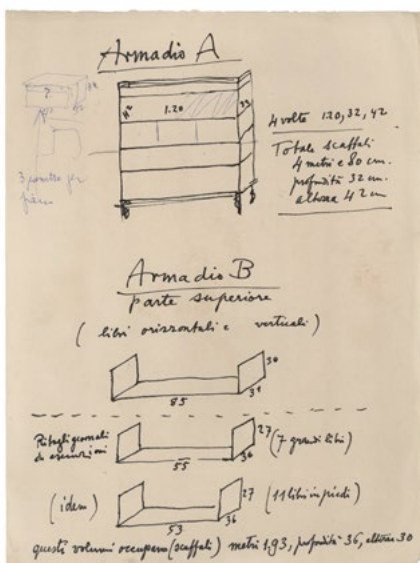 Armadio A
?
1.20
42
32
4 volte 1.20, 32, 42
Totale scaffali
4 metri e 80 cm.
profondità 32 cm.
altezza 42 cm
3 per
Armadio B
parte superiore
(libri orizzontali e verticali)
30
31
85
Ritagli giornali
di esecuzioni
27
36
55
(7 grandi libri)
(idem)
27
36
53
(11 libri in piedi)
questi volumi occupano (scaffali) metri 1,93, profondità 36, altezza 30